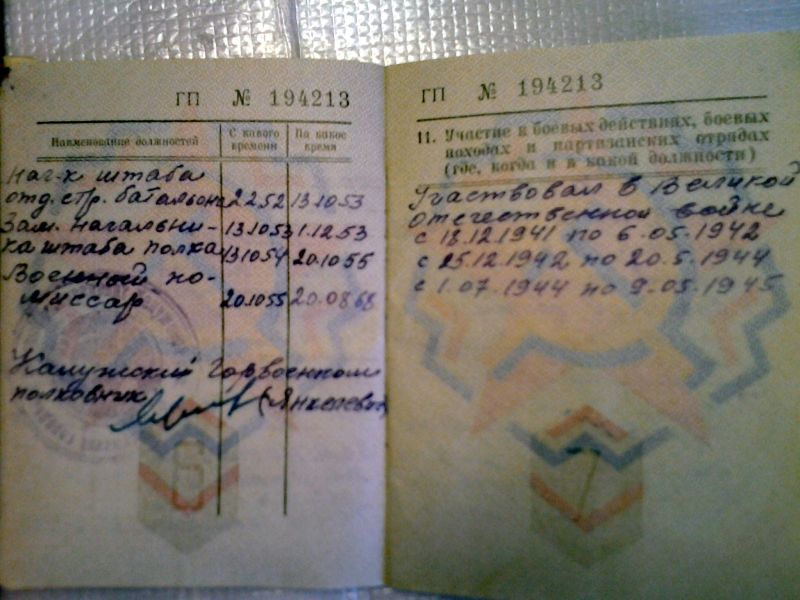 ГП № 194213
Наименование должностей
С какого времени
По какое время
Нач-к штаба
отд. стр. батальона 2.2.52 13.10.53
Зам. начальни- 13.10.53 1.12.53
ка штаба полка 13.10.54 20.10.55
Военный ко-
миссар 20.10.55 20.08.68
Калужский Горвоенком
полковник (Янкелевич)
6
ГП № 194213
11. Участие в боевых действиях, боевых
походах и партизанских отрядах
(где, когда и в какой должности)
Участвовал в Великой
Отечественной войне
с 18.12.1941 по 6.05.1942
с 25.12.1942 по 20.5.1944
с 1.07.1944 по 9.05.1945
7